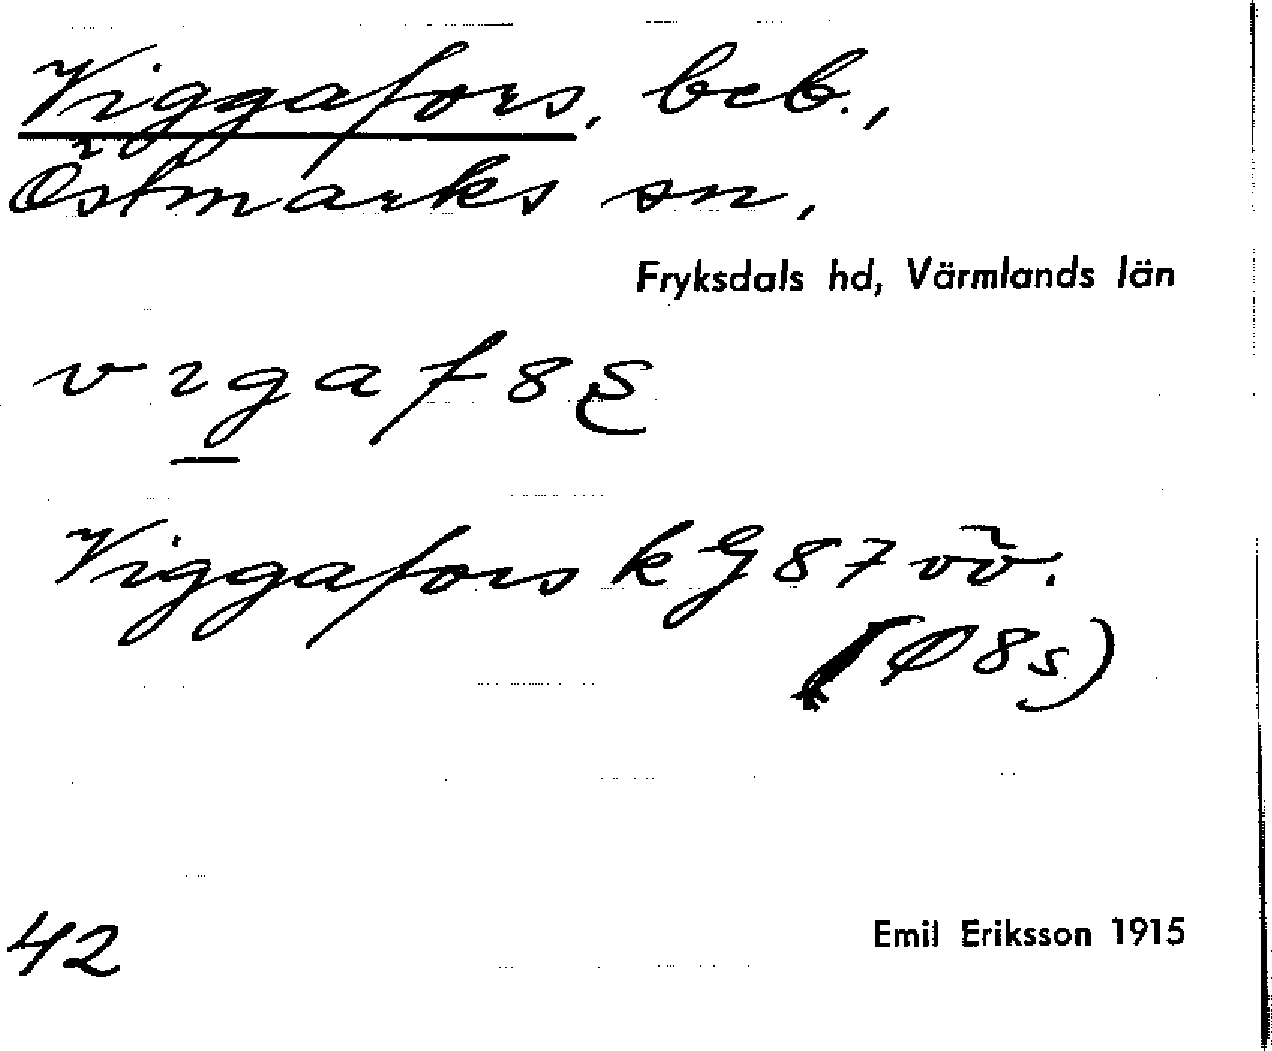 Viggafors, beb.,
Östmarks sn,
Fryksdals hd, Värmlands län
Viggafors k G 87 vö.
(Ø 8s)
42
Emil Eriksson 1915